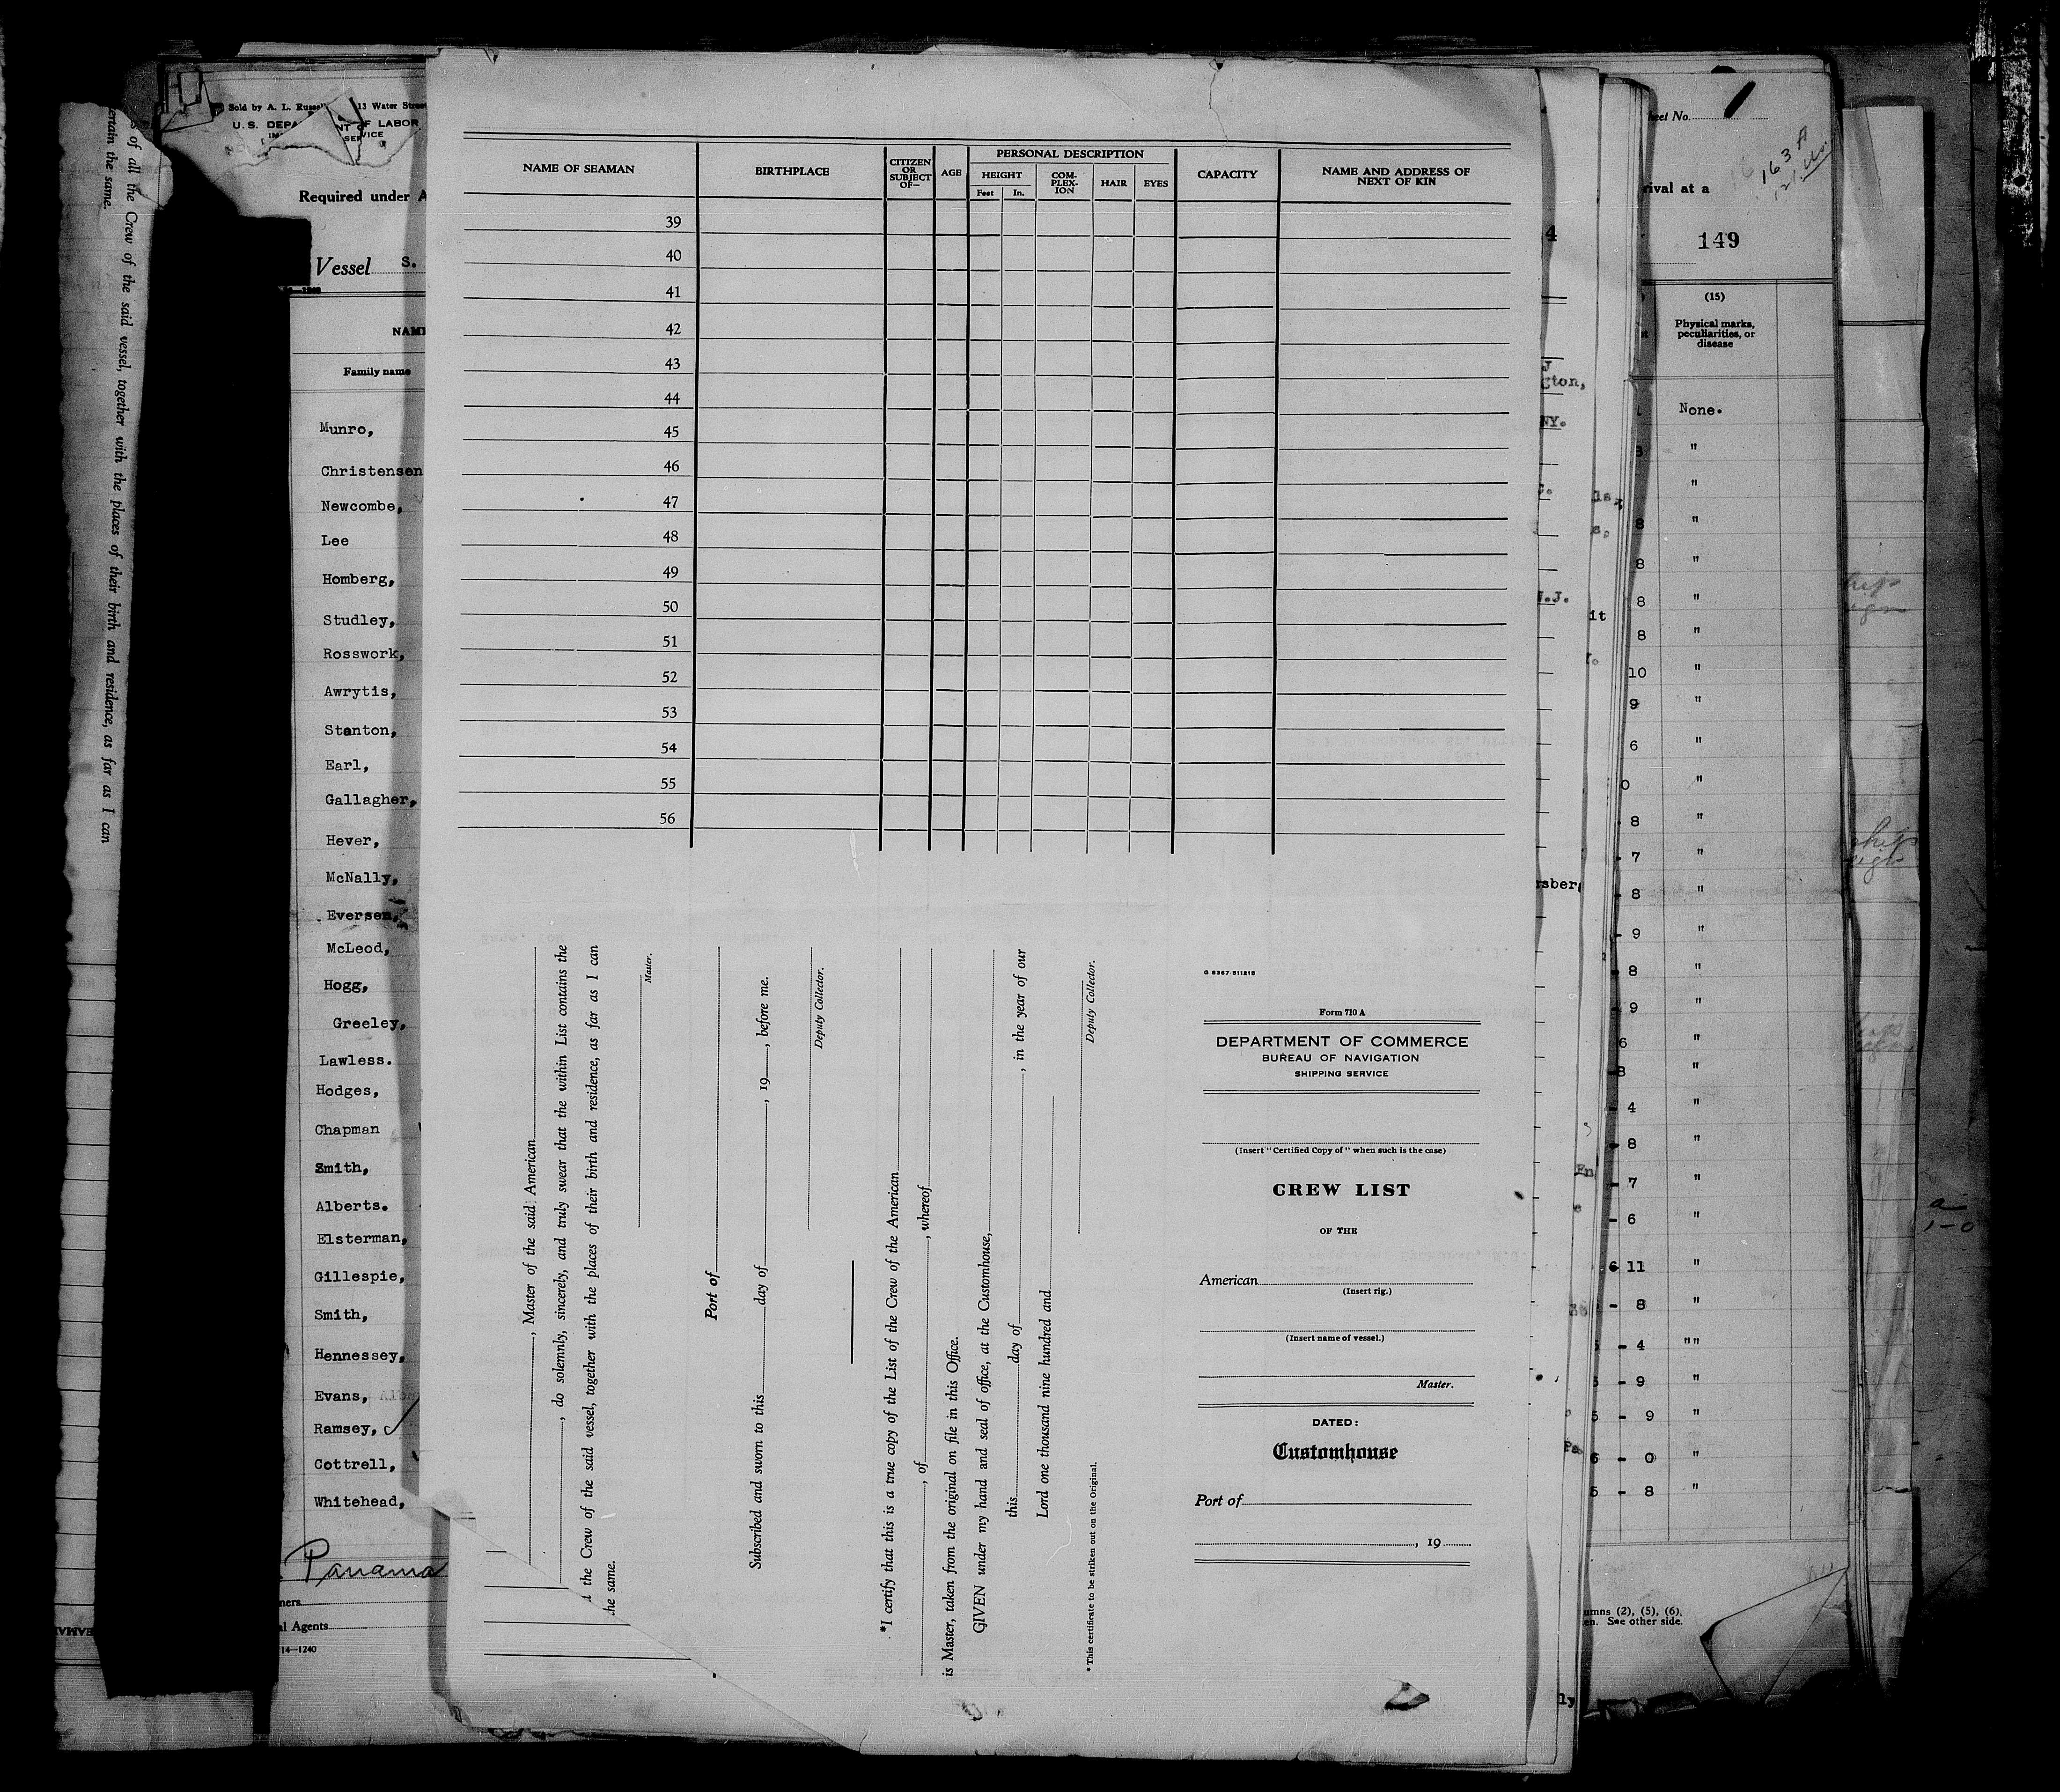 of all the Crew of the said vessel, together with the places of their birth and residence, as far as I can
ertain the same.
Sold by A. L. Russel 13 Water Stree
U.S. DEPA NT OF LABOR
SERVICE
Required under A
Vessel S.
NAME
Family name
Munro,
Christensen
Newcombe,
Lee
Homberg,
Studley,
Rosswork,
Awrytis,
Stanton,
Earl,
Gallagher,
Hever,
McNally,
Eversen,
McLeod,
Hogg,
Greeley,
Lawless.
Hodges,
Chapman
Smith,
Alberts.
Elsterman,
Gillespie,
Smith,
Hennessey,
Evans,
Ramsey,
Cottrell,
Whitehead,
Panama
ners
al Agents
14—1240
NAME OF SEAMAN
BIRTHPLACE
CITIZEN
OR
SUBJECT
OF—
AGE
PERSONAL DESCRIPTION
HEIGHT
Feet In.
COM-
PLEX-
ION
HAIR
EYES
CAPACITY
NAME AND ADDRESS OF
NEXT OF KIN
39
40
41
42
43
44
45
46
47
48
49
50
51
52
53
54
55
56
, Master of the said American
, do solemnly, sincerely, and truly swear that the within List contains the
the Crew of the said vessel, together with the places of their birth and residence, as far as I can
he same.
Master.
Port of
Subscribed and sworn to this day of , 19 , before me.
Deputy Collector.
*I certify that this is a true copy of the List of the Crew of the American
, of , whereof
is Master, taken from the original on file in this Office.
GIVEN under my hand and seal of office, at the Customhouse,
this day of , in the year of our
Lord one thousand nine hundred and
Deputy Collector.
*This certificate to be striken out on the Original.
Form 710 A
DEPARTMENT OF COMMERCE
BUREAU OF NAVIGATION
SHIPPING SERVICE
(Insert "Certified Copy of" when such is the case)
CREW LIST
OF THE
American
(Insert rig.)
(Insert name of vessel.)
Master.
DATED:
Customhouse
Port of
, 19
4
J
gton,
NY.
N.J.
rsber
it
En
Pa
ly
eet No. 1
163 A
rival at a
149
(15)
Physical marks,
peculiarities, or
disease
None.
"
"
8 "
8 "
8 "
8 "
10 "
9 "
6 "
0 "
8 "
7 "
8 "
9 "
8 "
9 "
6 "
8 "
4 "
8 "
7 "
6 "
11 "
8 "
4 ""
9 "
9 "
0 "
8 "
umns (2), (5), (6),
en. See other side.